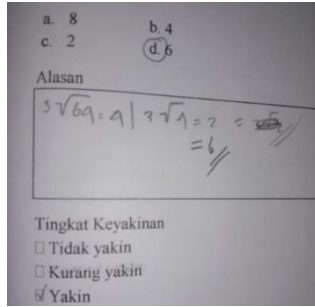 a. 8 b. 4
c. 2 d. 6
Alasan
³√69 = 9 | ³√9 = 2 =
= 6
Tingkat Keyakinan
☐ Tidak yakin
☐ Kurang yakin
☑ Yakin